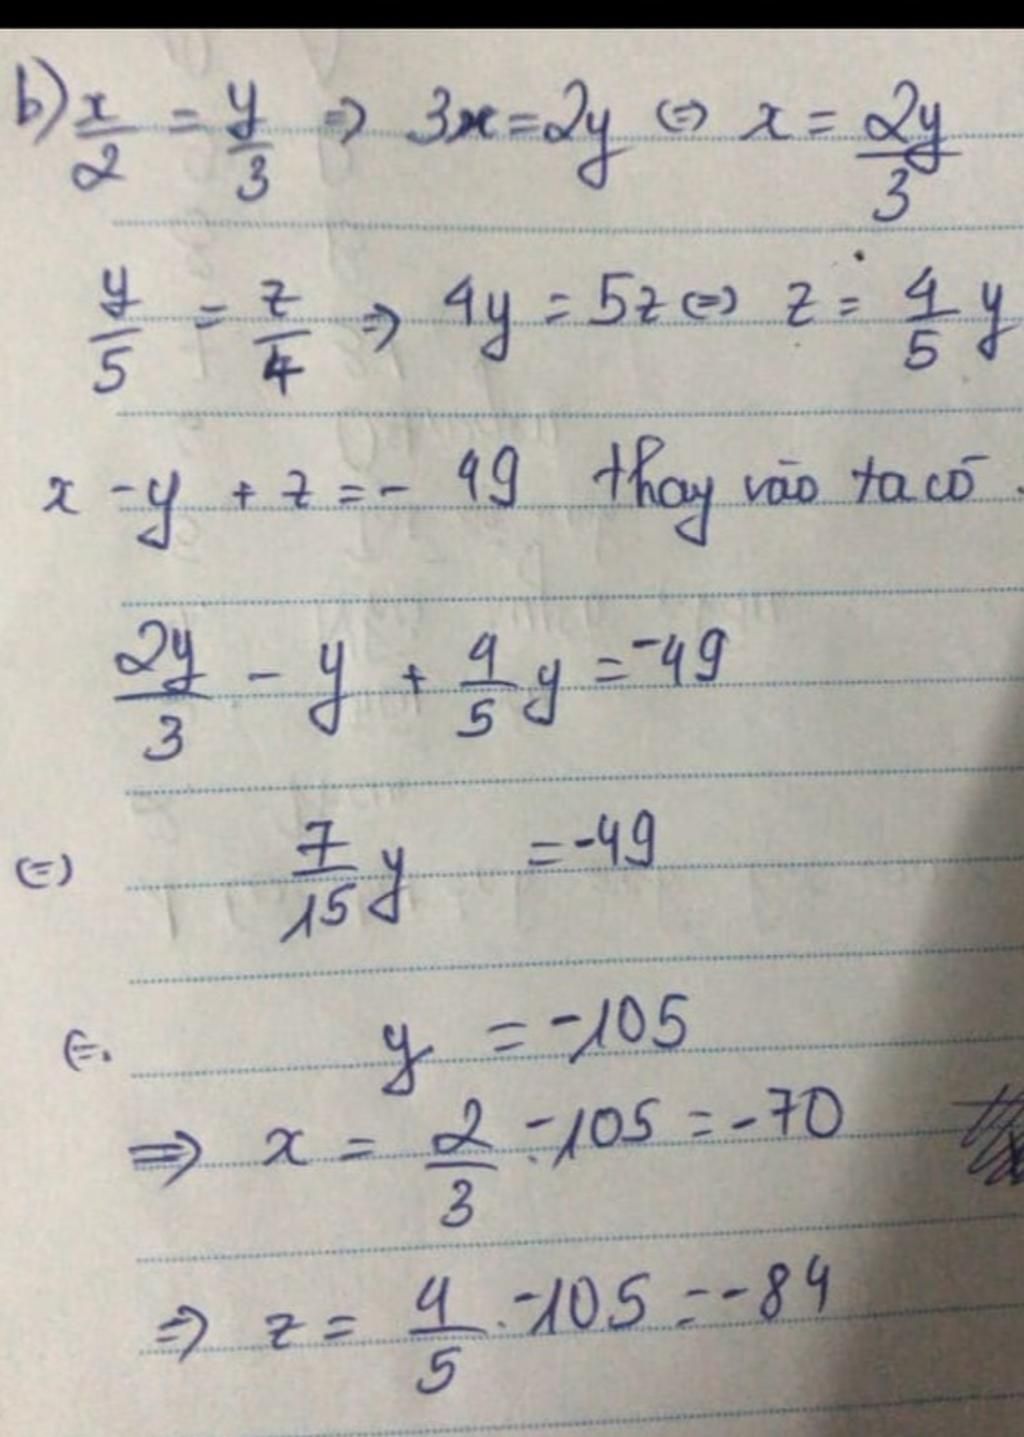 b) x/2 = y/3 => 3x = 2y (=) x = 2y/3
y/5 = z/4 => 4y = 5z (=) z = 4/5 y
x - y + z = - 49 thay vào ta có.
2y/3 - y + 4/5 y = -49
(=) 7/15 y = -49
(=. y = -105
=> x = 2/3 . -105 = -70
=> z = 4/5 . -105 = -84